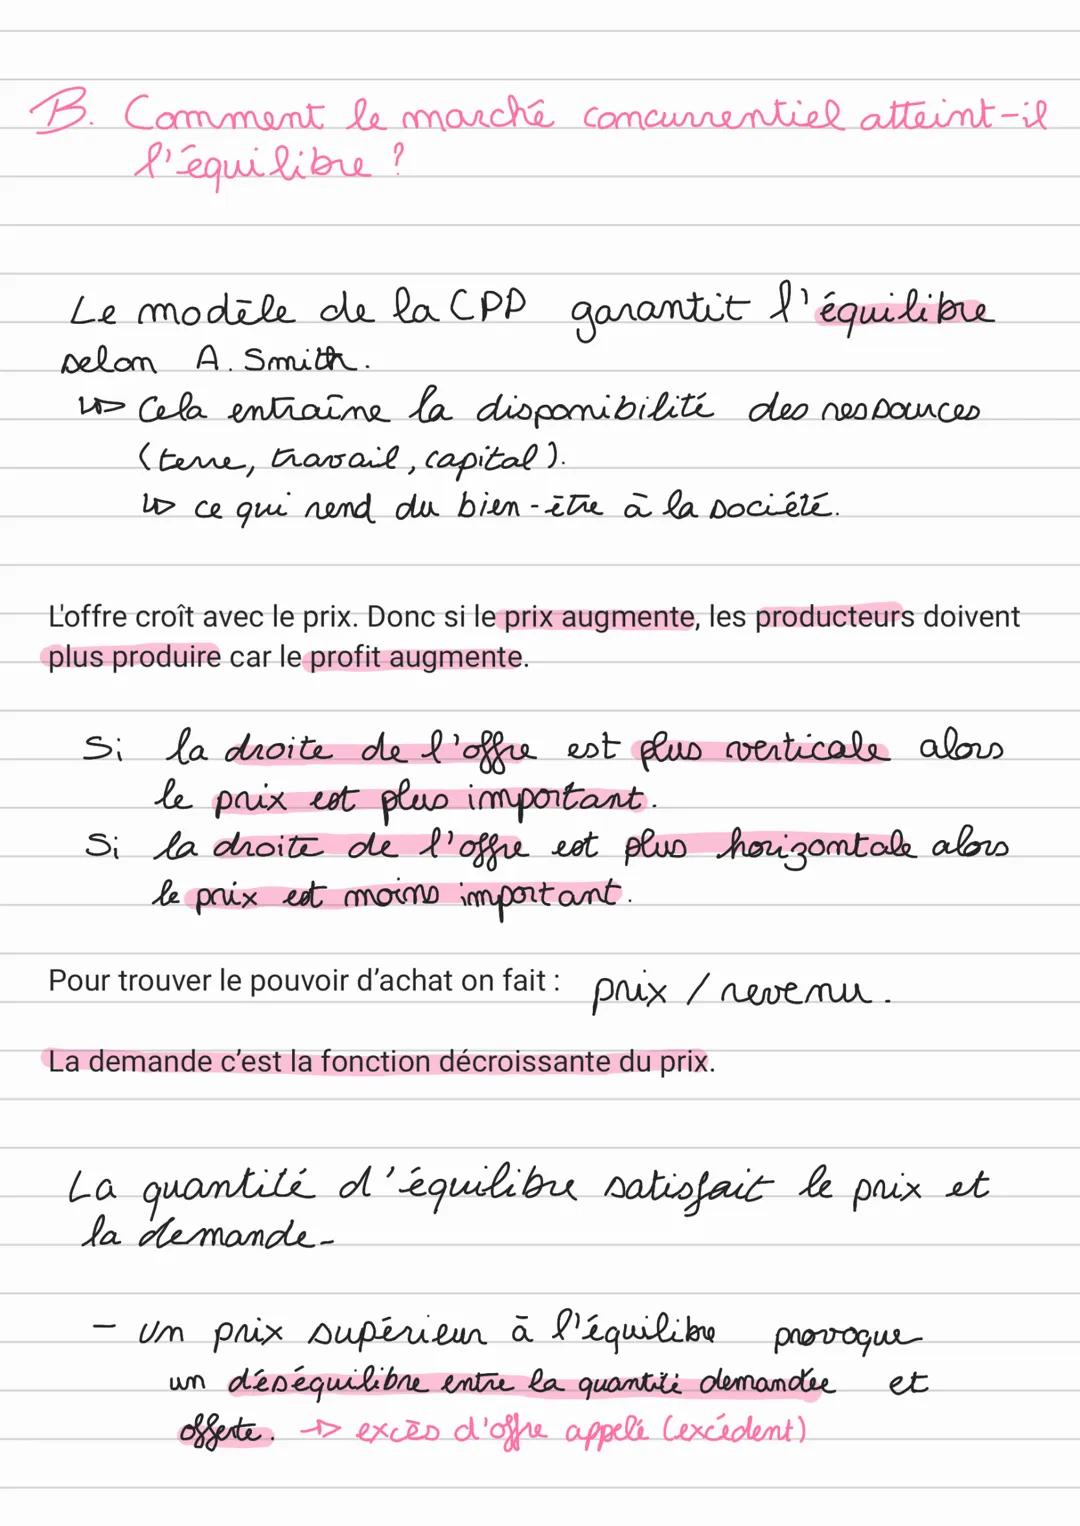 B. Comment le marché concurrentiel atteint-il
l'équilibre ?
Le modèle de la CPP garantit l'équilibre
selon A. Smith.
↳ Cela entraîne la disponibilité des ressources
(terre, travail, capital).
↳ ce qui rend du bien-être à la société.
L'offre croît avec le prix. Donc si le prix augmente, les producteurs doivent
plus produire car le profit augmente.
Si la droite de l'offre est plus verticale alors
le prix est plus important.
Si la droite de l'offre est plus horizontale alors
le prix est moins important.
Pour trouver le pouvoir d'achat on fait : prix / revenu.
La demande c'est la fonction décroissante du prix.
La quantité d'équilibre satisfait le prix et
la demande-
- Un prix supérieur à l'équilibre provoque
un déséquilibre entre la quantité demandée et
offerte. → excès d'offre appelé (excédent)